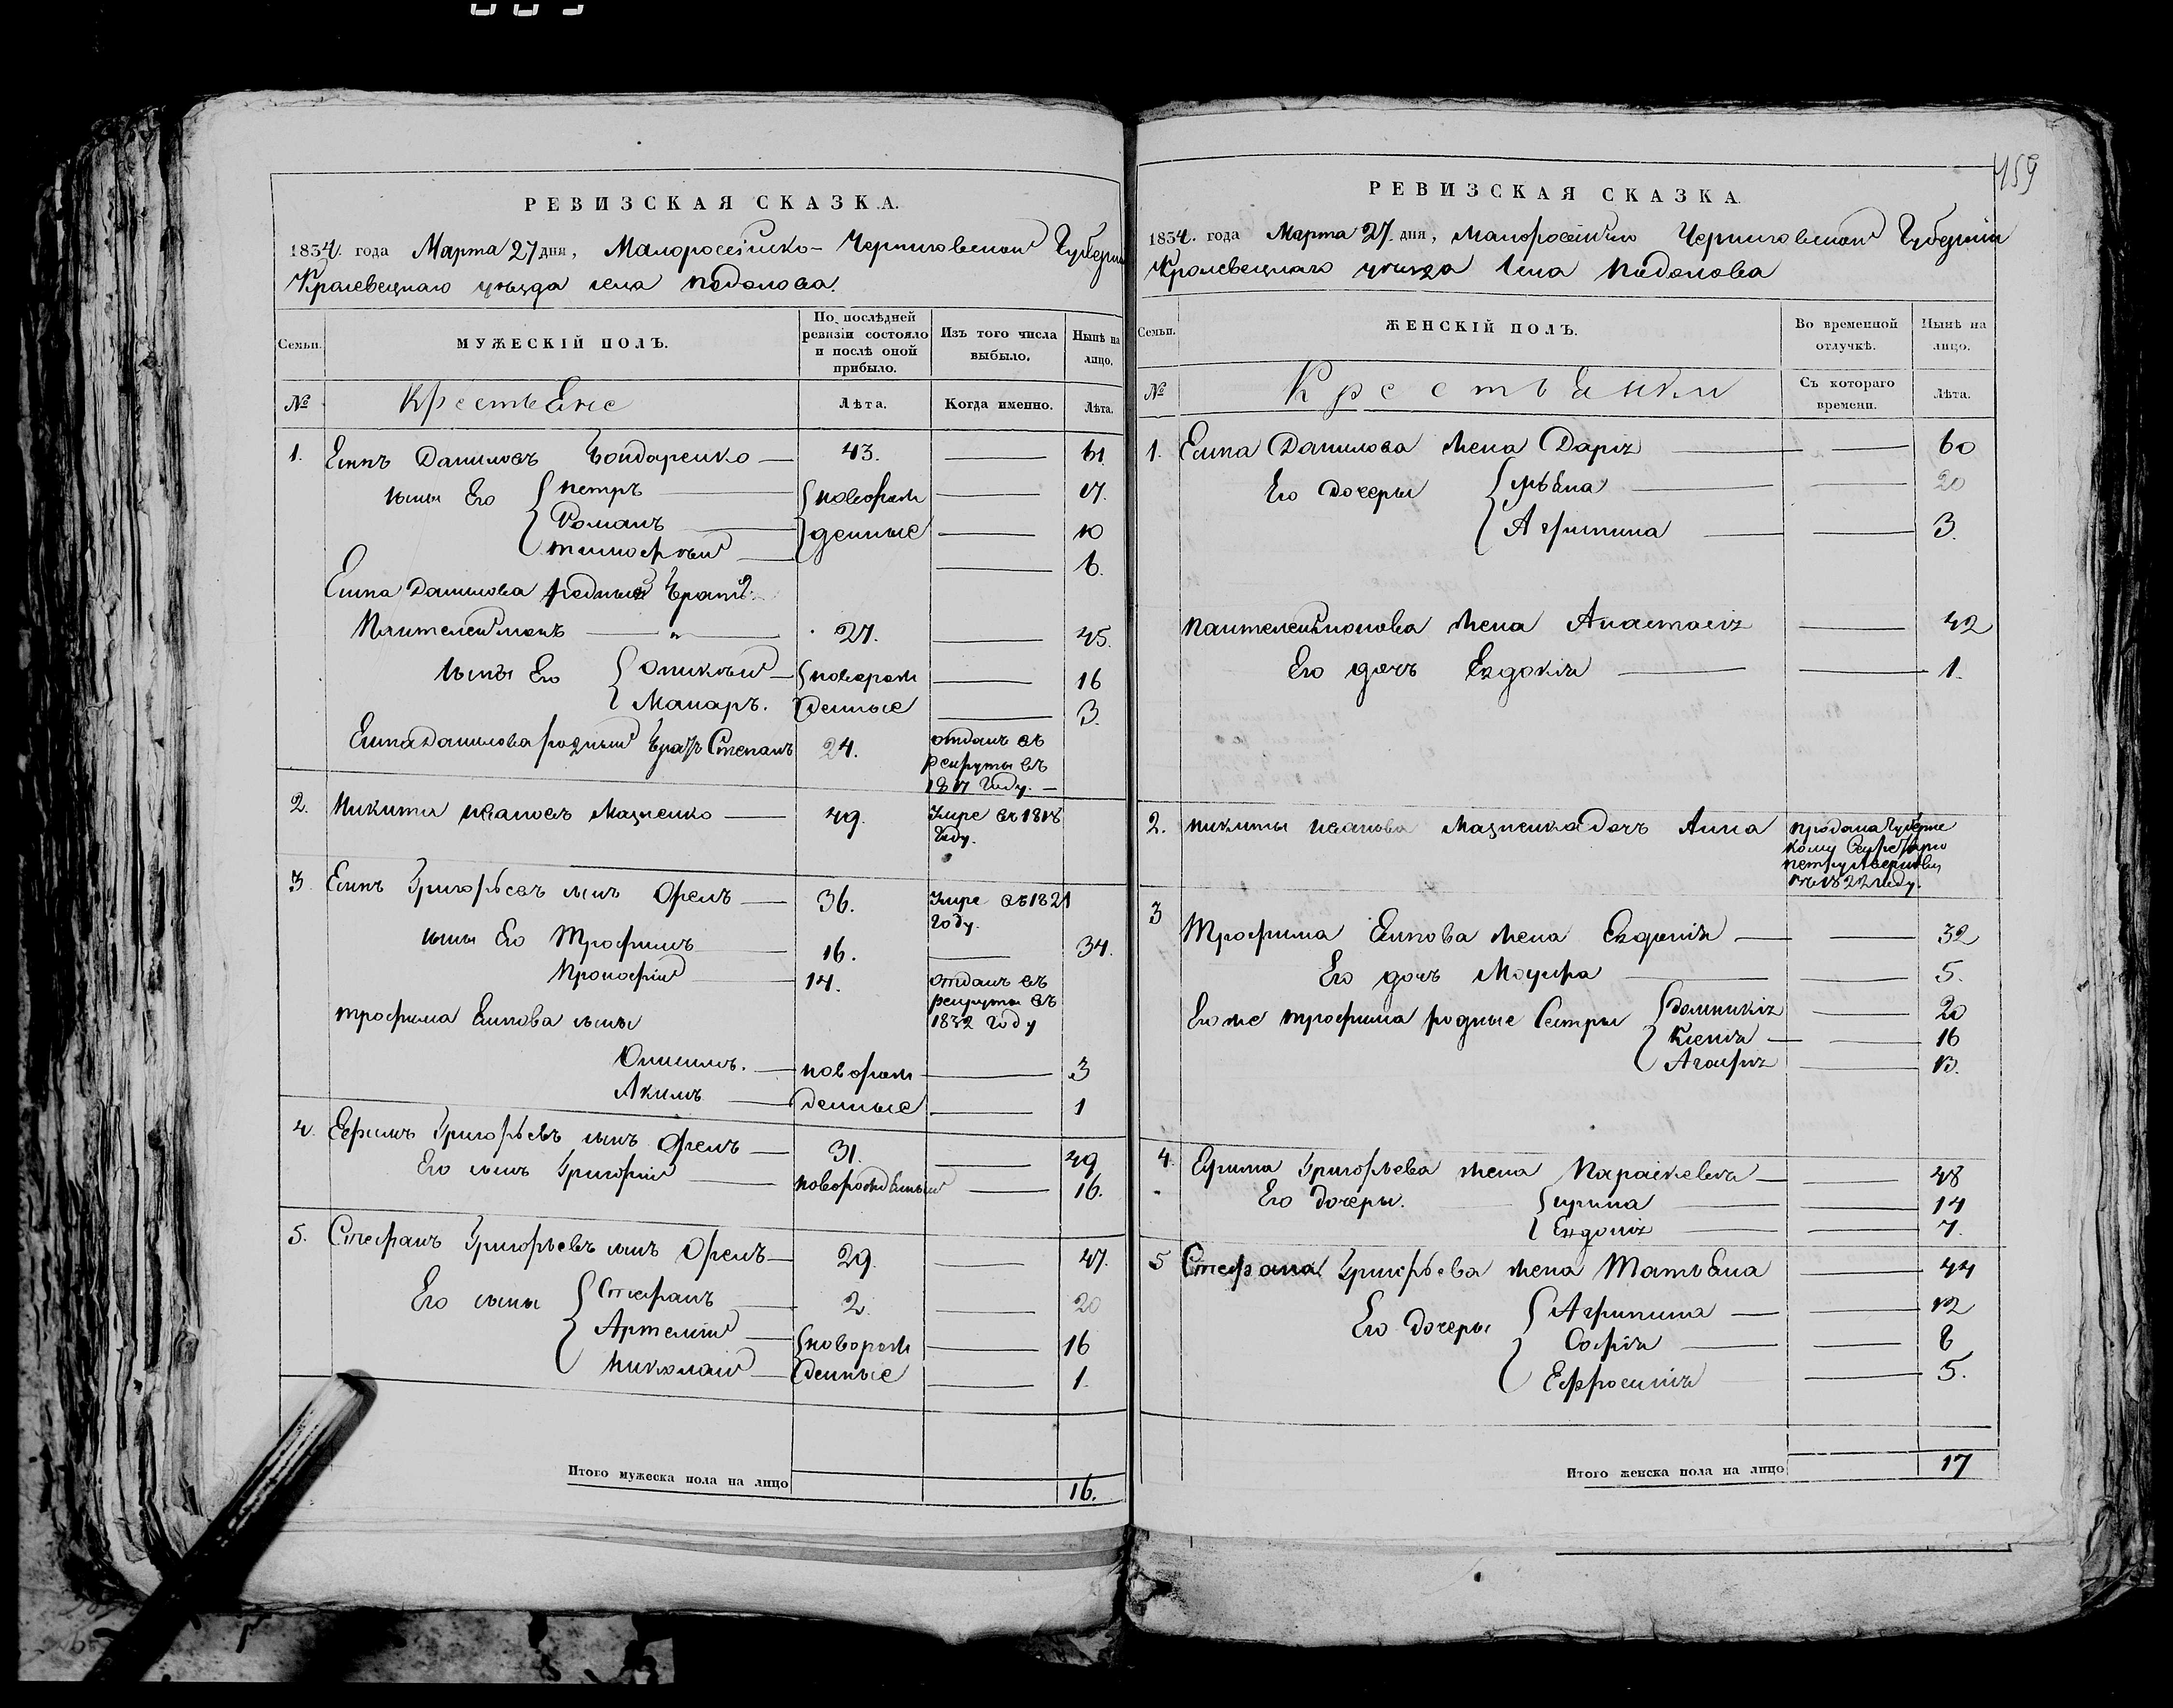 РЕВИЗСКАЯ СКАЗКА.
1834. года Марта 27 дня, Малоросеійско-Черниговской Губерніи
Кролевецкаго уѣзда села Подолова.
Семьи.
МУЖЕСКІЙ ПОЛЪ.
По послѣдней ревизіи состояло и послѣ оной прибыло.
Изъ того числа выбыло.
Нынѣ на лицо.
№
Крестьяне
Лѣта.
Когда именно.
Лѣта.
1. Даниловъ Бондаренко 43. 61
сыны Его Петръ новорож 17.
Романъ денные 10
Тимофѣй 6.
Данилова родный Братъ
Пантелеймонъ 27. 45.
сыны Его новорож 16
Макаръ. денные 3.
Данилова родный Братъ Степанъ 24. отданъ въ
рекруты въ
1817 Году.
2. Никита Ивановъ Мазненко 49. Умре въ 1818
Году.
3. Григорьевъ сынъ Орелъ 36. Умре въ 1821
Году.
сыны Его Трофимъ 16. 34.
Прокофій 14. отданъ въ
рекруты въ
1832 Году
Трофима сыны
Онисимъ. новорож 3
Акимъ денные 1
4. Ефимъ Григорьевъ сынъ Орелъ 31. 49
Его сынъ Григорій новорожденный 16.
5. Стефанъ Григорьевъ сынъ Орелъ 29. 47.
Его сыны Стефанъ 2. 20
Артемій новорож 16
Николай денные 1.
Итого мужеска пола на лицо 16.
459
РЕВИЗСКАЯ СКАЗКА.
1834. года Марта 27. дня, Черниговской Губерніи
Кролевецкаго уѣзда Села Подолова
Семьи.
ЖЕНСКІЙ ПОЛЪ.
Во временной отлучкѣ.
Нынѣ на лицо.
№
Крестьянки
Съ котораго времени.
Лѣта.
1. Данилова жена Дарія 60
Его дочеры Ульяна 20
Агрипина 3.
Пантелеймонова жена Анастасія 42
Его дочъ Евдокія 1.
2. Никиты Иванова Мазненка дочъ Анна продана Губернс
кому Секретарю
Петру
въ 1822 году.
3 Трофима жена Евдокія 32
Его дочъ 5.
Его же Трофима родные Сестры Домникія 20
Ксенія 16
Агафія 13.
4. Ефима Григорьева жена Параскевія 48
Его дочеры. Ирина 14
Евдокія 7.
5 Стефана Григорьева жена Татьяна 44
Его дочеры Агрипина 12
Софія 8
Ефросинія 5.
Итого женска пола на лицо 17